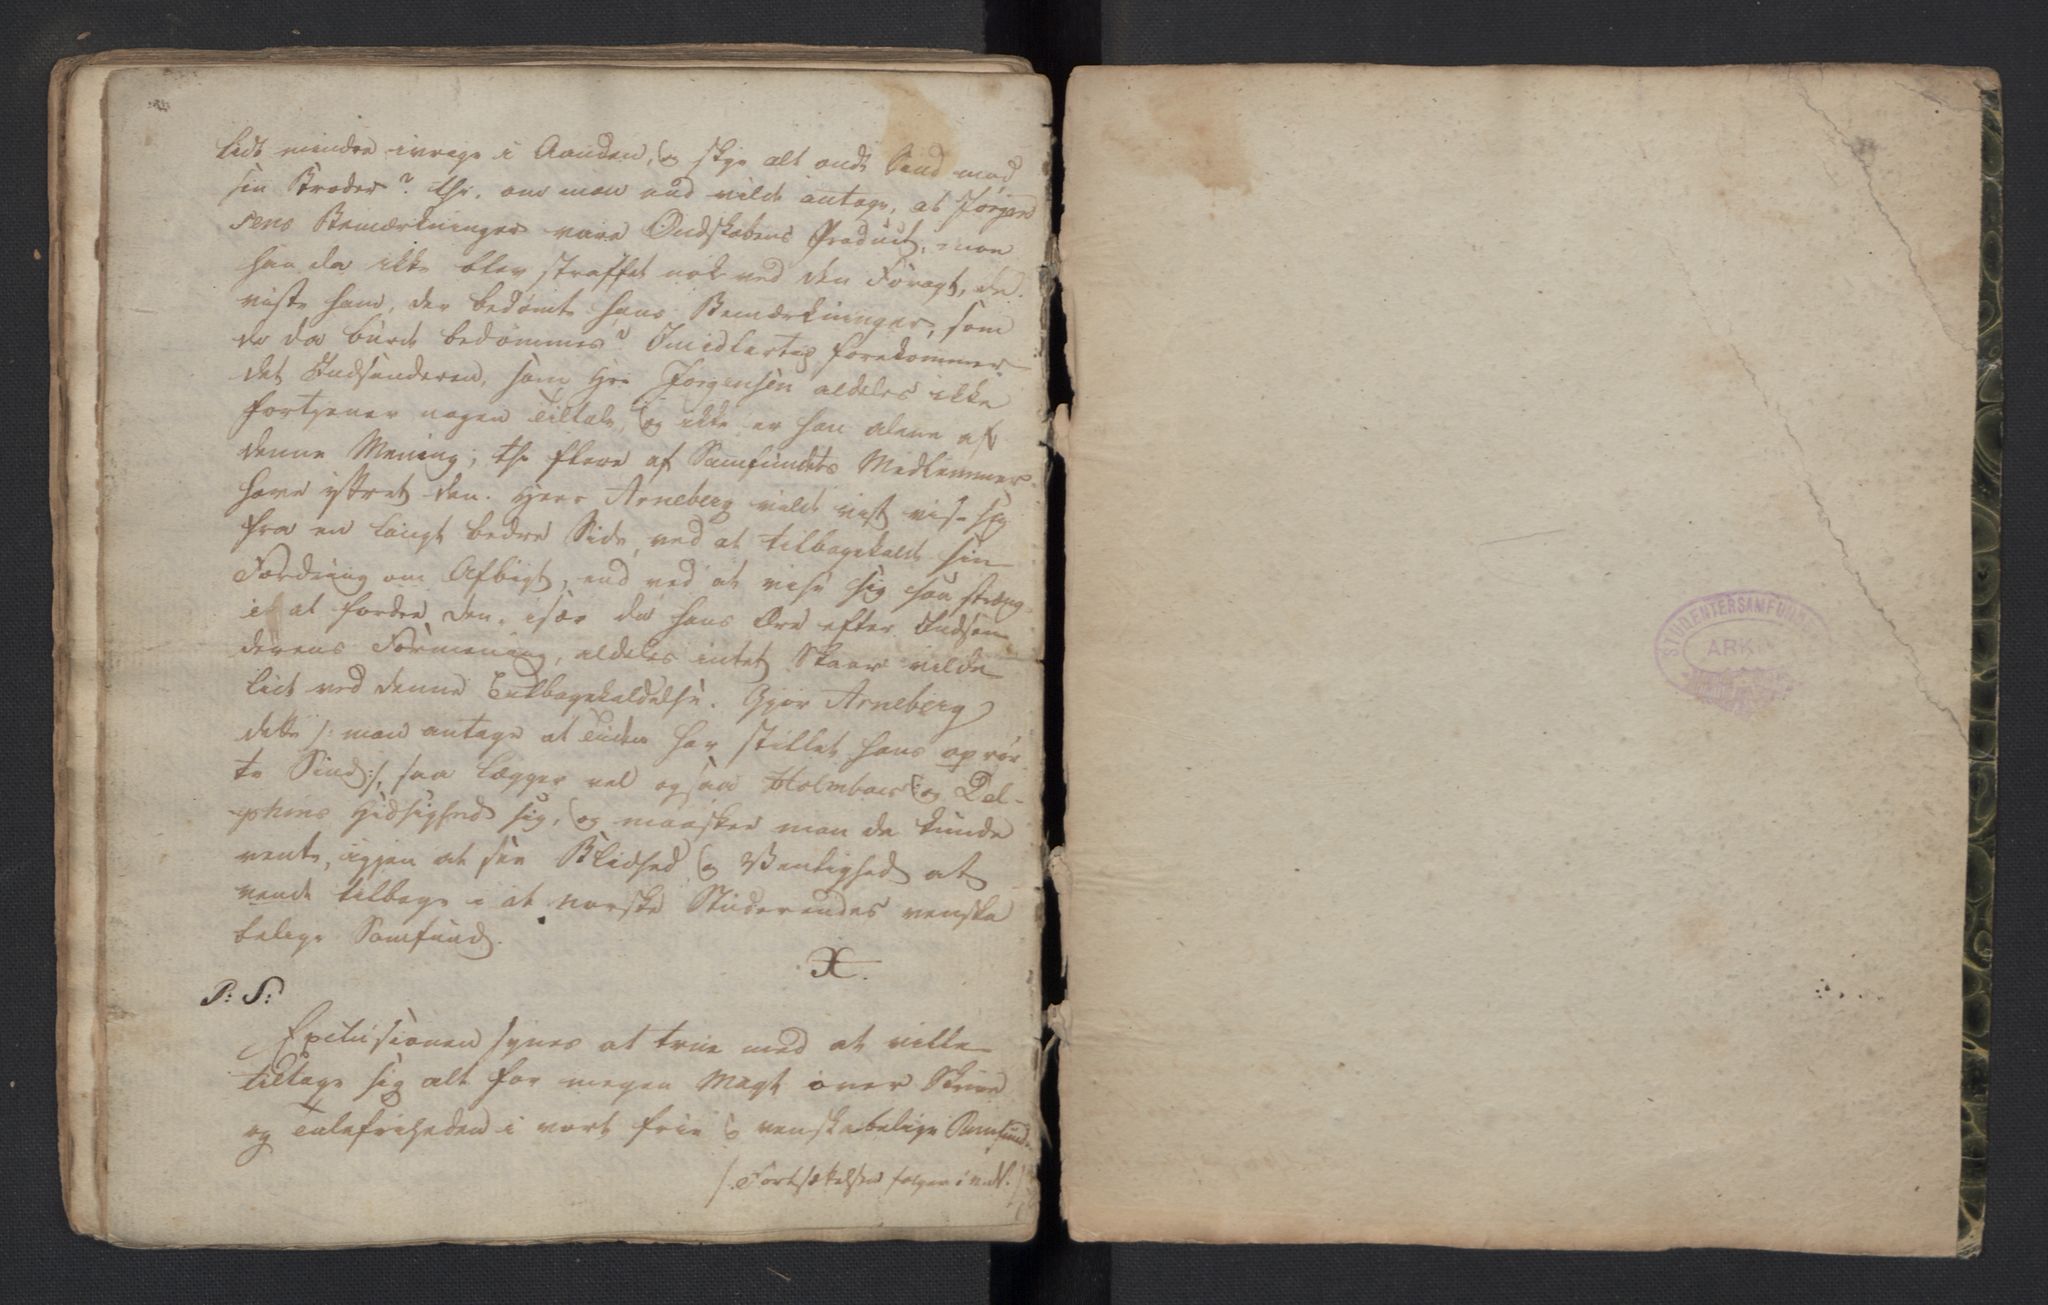 lidt mindre ivrige i Aanden, og skye alt ondt Sind mod
sin Broder? thi, om man end vilde antage, at Jørgen
sens Bemærkninger vare Ondskabens Product, mon
han da ikke blev straffet nok ved den Foragt, de
viste ham, der bedømte hans Bemærkninger, som
de da burde bedømmes? Imidlertid forekommer
det Indsenderen, som Hr. Jørgensen aldeles ikke
fortjener nogen Tiltale, og ikke er han alene af
denne Mening; thi flere af Samfundets Medlemmer
have yttret den. Herr Arneberg vilde vist vise sig
fra en langt bedre Side, ved at tilbagekalde sin
Fordring om Afbigt, end ved at vise sig saa stræng
i at fordre den, især da hans Ære efter Indsen
derens Formening, aldeles intet Skaar vilde
lide ved denne Tilbagekaldelse. Gjør Arneberg
dette /: man antage at Tiden har stillet hans oprør-
te Sind :/, saa lægger vel ogsaa Holmboes og Del-
phins Hidsighed sig, og maaskee man da kunde
vente, igjen at see Blidhed og Venlighed at
vende tilbage i at norske Studerendes venska
belige Samfund.
X.
P: S:
Expeditionen synes at true med at ville
tiltage sig alt for megen Magt over Skrive
og Talefriheden i vort frie og venskabelige Samfund.
/: Fortsættelsen følger i næst. :/
STUDENTERSAMFUNDETS
ARKIV